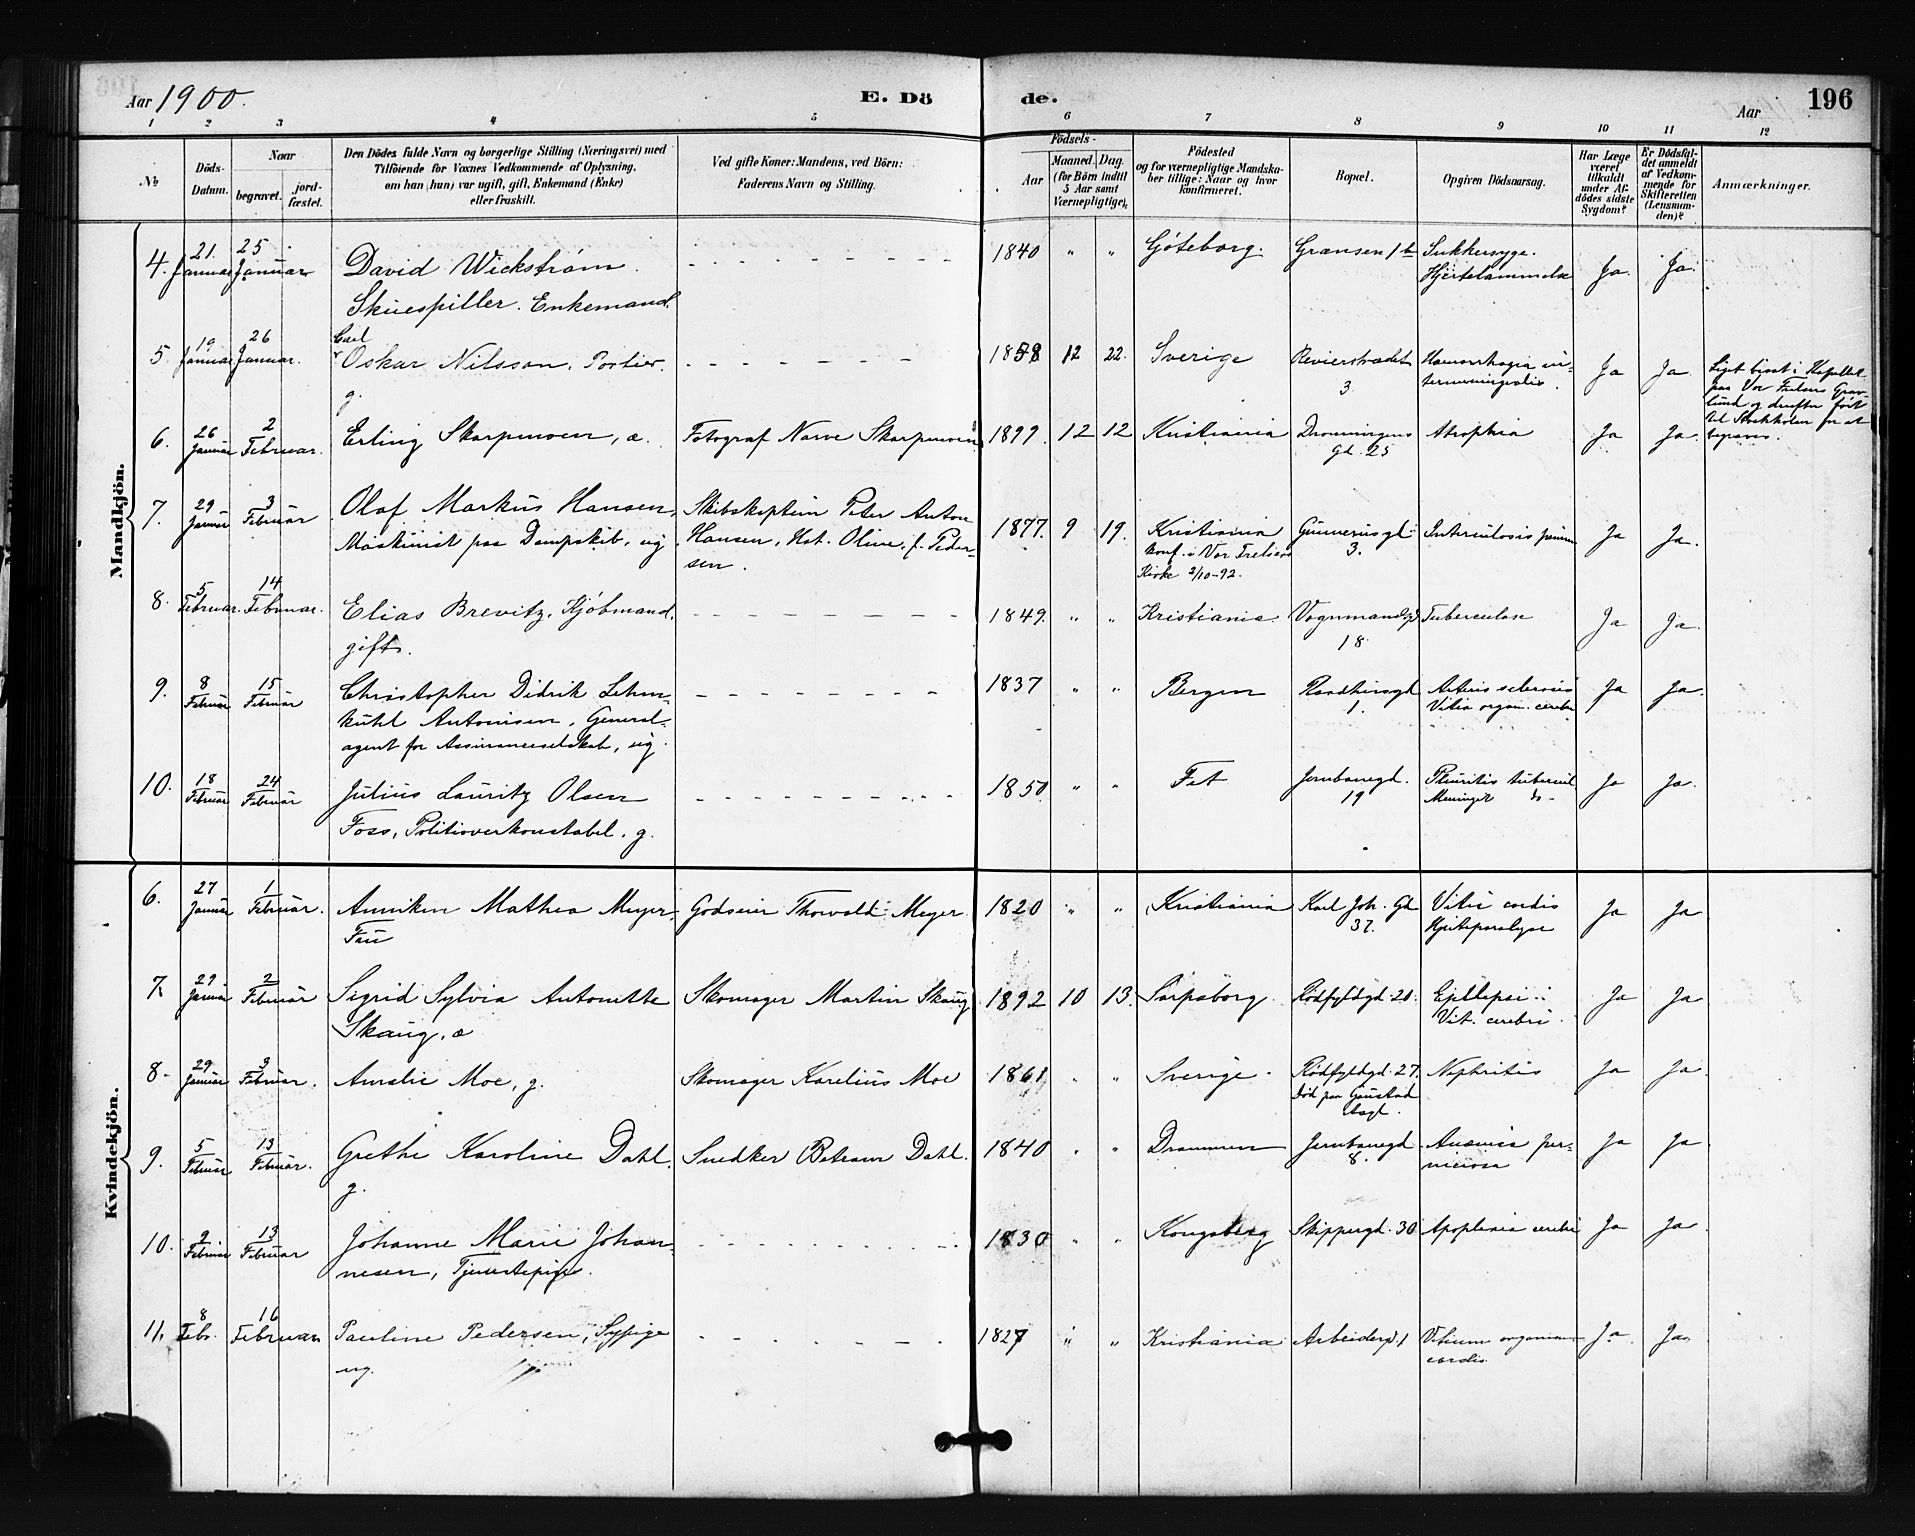 Aar 1900.
E. Dö
de.
Aar
196
1 2 3 4 5 6 7 8 9 10 11 12
№
Döds-
Datum.
Naar
begravet.
jord-
fæstet.
Den Dödes fulde Navn og borgerlige Stilling (Næringsvei) med
Tilföiende for Voxnes Vedkommende af Oplysning,
om han (hun) var ugift, gift, Enkemand (Enke)
eller fraskilt.
Ved gifte Koner: Mandens, ved Börn:
Faderens Navn og Stilling.
Födsels-
Aar
Maaned. Dag.
(for Börn indtil
5 Aar samt
Værnepligtige).
Födested
og for værnepligtige Mandska-
ber tillige: Naar og hvor
konfirmeret.
Bopæl.
Opgiven Dödsaarsag.
Har Læge
været
tilkaldt
under Af-
dödes sidste
Sygdom?
Er Dödsfal-
det anmeldt
af Vedkom-
mende for
Skifteretten
(Lensman-
den)?
Anmærkninger.
Mandkjön.
4. 21. Januar 25 Januar David Wickstrøm. 1840 " " Göteborg. Grænsen 1 b Sukkersyge. Ja. Ja.
Skuespiller. Enkemand. Hjertelammelse
Carl
5. 19 Januar 26 Januar. Oskar Nilsson, Portier. 1858 12 22. Sverige Revierstrædet Hæmorrhagia in- Ja Ja.
g. 3. termeningealis.
Liget bisat i Kapellet
paa Vor Frelsers Grav-
lund og derefter ført
til Stockholm for at
begraves.
6. 26 Januar 2 Februar. Erling Skarpmoen, æ. Fotograf Narve Skarpmoen 1899. 12 12 Kristiania Dronningens Atrophia Ja Ja.
gd. 25
7. 29 Januar 3 Februar Olaf Markus Hansen, Skibskaptein Peter Anton 1877. 9 19. Kristiania Gunnerusgd. Ja Ja.
Maskinist paa Dampskib, ug Hansen, Hst. Oline, f. Peder- konf. i Vor Frelsers 3.
sen. Kirke 2/10-92.
8. 5 Februar. 14 Februar. Elias Brevitz, Kjøbmand, 1849. " " Kristiania. Vognmandsgd Tuberculose Ja Ja.
gift. 18.
9. 8 Februar 15 Februar Christopher Didrik Lehm- 1837 " " Bergen Raadhusgd Arterio sclerosis Ja Ja.
kuhl Antonisen, General- 1. Vitia organ. cerebri
agent for Assuranceselskab, ug.
10. 18 Februar 24 Februar Julius Lauritz Olsen 1850. " " Fet Jernbanegd. Pleuritis tubercul Ja Ja.
Foss, Politioverkonstabel. g. 19 Meningit do-
Kvindekjön.
6. 27 Januar 1 Februar. Anniken Mathea Meyer, Godseier Thorvald Meyer. 1820 " " Kristiania Karl Joh. Gd Vitii cordis Ja Ja
Fru 37. Hjerteparalyse
7. 29 Januar 2 Februar Sigrid Sylvia Antonette Skomager Martin Skaug 1892 10 13. Sarpsborg. Rødfyldgd. 20. Epilepsi Ja Ja
Skaug, æ Vit. cerebri.
8. 29 Januar 3 Februar. Amalie Moe, g. Skomager Karelius Moe 1861 " " Sverige Rødfyldgd. 27. Nephritis Ja Ja.
Død paa Gaustad
Asyl.
9. 5 Februar 13 Februar. Grethe Karoline Dahl. Snedker Betram Dahl. 1840 " " Drammen Jernbanegd Anæmia per- Ja Ja
g. 8. niciosa
10. 9 Februar 13 Februar Johanne Marie Johan- 1830 " " Kongsberg Skippergd. 30 Apoplexia cerebri Ja Ja
nesen, Tjenestepige.
11. 8 Febr. 16 Februar Pauline Pedersen, Sypige 1827 " " Kristiania Arbeidergd. 1 Vitium organicum Ja. Ja.
ug. cordis.